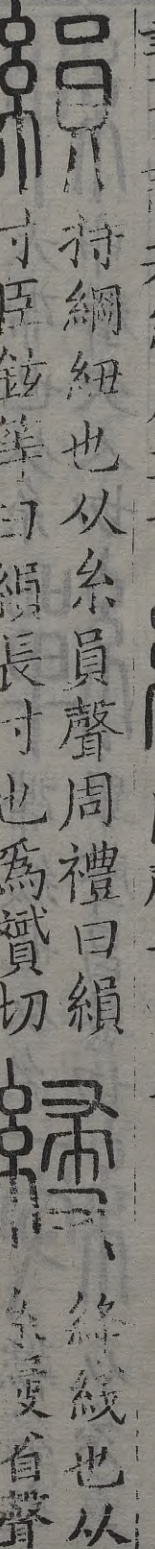 縜
持綱紐也从糸員聲周禮曰縜
寸臣鉉等曰縜長寸也爲贇切
綅
絳綫也从
糸侵省聲